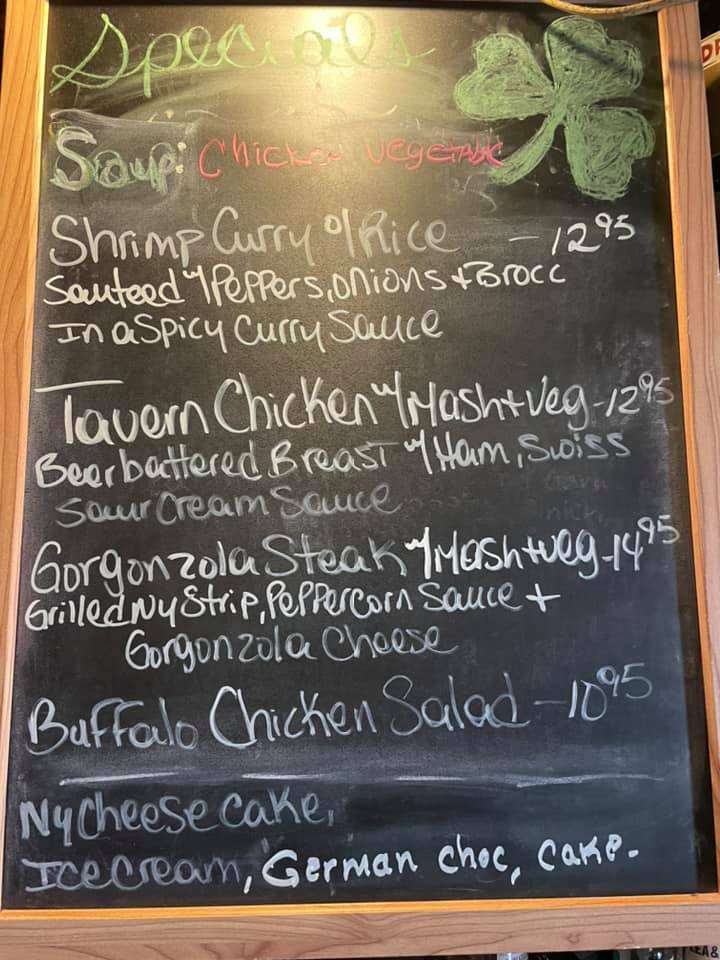 Specials
Soup: Chicken Vegetable
Shrimp Curry w/Rice - 12 95
Sauteed w/Peppers, onions + Brocc
In a Spicy Curry Sauce
Tavern Chicken w/Mash + Veg - 12 95
Beer battered Breast w/Ham, Swiss
Sour Cream Sauce
Gorgonzola Steak w/Mash + Veg - 14 95
Grilled Ny Strip, Peppercorn Sauce +
Gorgonzola Cheese
Buffalo Chicken Salad - 10 95
Ny Cheese cake,
Ice cream, German choc, cake.